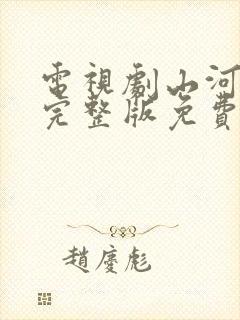 電視劇山河
完整版免費
趙慶彪